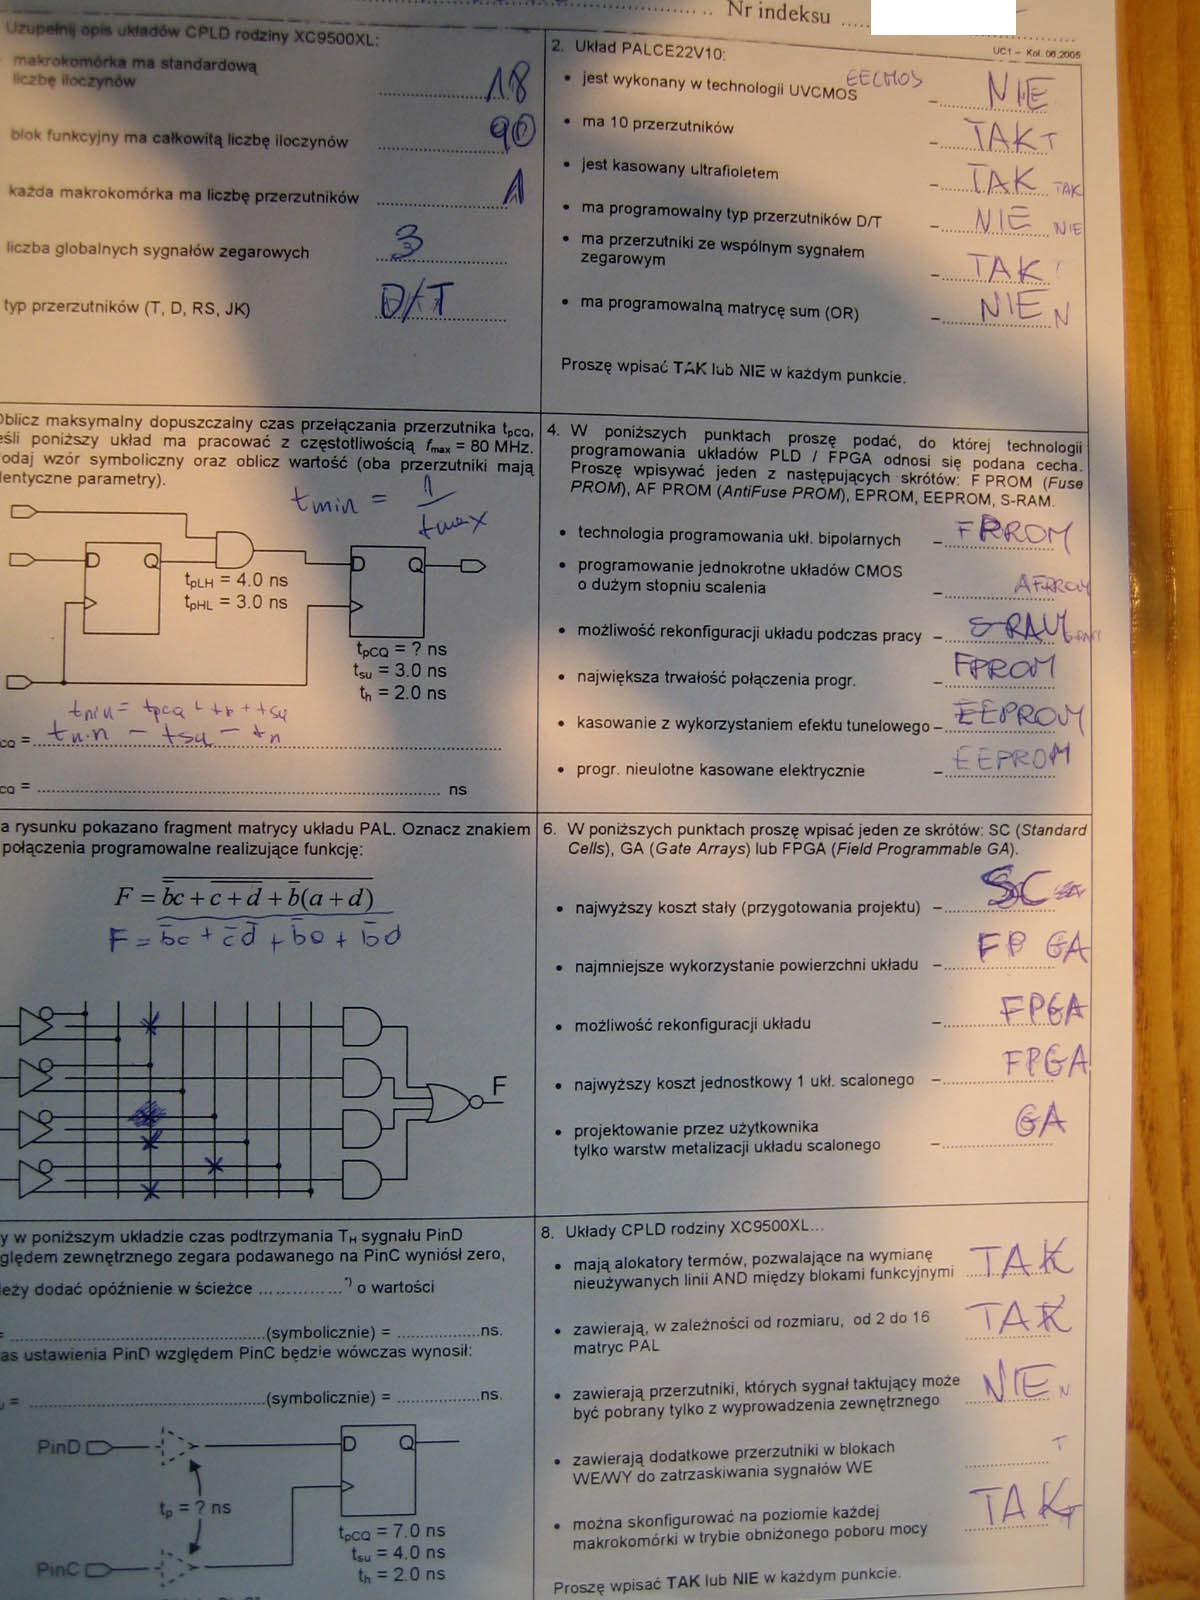 Nr indeksu
UC1 – Kol. 06.2005
Uzupełnij opis układów CPLD rodziny XC9500XL:
makrokomórka ma standardową
liczbę iloczynów 18
blok funkcyjny ma całkowitą liczbę iloczynów 90
każda makrokomórka ma liczbę przerzutników 1
liczba globalnych sygnałów zegarowych 3
typ przerzutników (T, D, RS, JK) D/T
2. Układ PALCE22V10:
EECMOS
• jest wykonany w technologii UVCMOS – NIE
• ma 10 przerzutników – TAK T
• jest kasowany ultrafioletem – TAK TAK
• ma programowalny typ przerzutników D/T – NIE NIE
• ma przerzutniki ze wspólnym sygnałem
zegarowym – TAK
• ma programowalną matrycę sum (OR) – NIE N
Proszę wpisać TAK lub NIE w każdym punkcie.
Oblicz maksymalny dopuszczalny czas przełączania przerzutnika tpCQ,
eśli poniższy układ ma pracować z częstotliwością fmax = 80 MHz.
odaj wzór symboliczny oraz oblicz wartość (oba przerzutniki mają
dentyczne parametry).
tmin = 1
fmax
D Q
tpLH = 4.0 ns
tpHL = 3.0 ns
D Q
tpCQ = ? ns
tsu = 3.0 ns
th = 2.0 ns
tmin = tpCQ + tp + tsu
CQ = tmin – tsu – tn
CQ = ns
4. W poniższych punktach proszę podać, do której technologii
programowania układów PLD / FPGA odnosi się podana cecha.
Proszę wpisywać jeden z następujących skrótów: F PROM (Fuse
PROM), AF PROM (AntiFuse PROM), EPROM, EEPROM, S-RAM.
• technologia programowania ukł. bipolarnych – FPROM
• programowanie jednokrotne układów CMOS
o dużym stopniu scalenia – AFPROM
• możliwość rekonfiguracji układu podczas pracy – S-RAM
• największa trwałość połączenia progr. – FPROM
• kasowanie z wykorzystaniem efektu tunelowego – EEPROM
• progr. nieulotne kasowane elektrycznie – EEPROM
a rysunku pokazano fragment matrycy układu PAL. Oznacz znakiem
połączenia programowalne realizujące funkcję:
F = b̅c + c + d + b̅(a + d)
F = b̅c + c̅d̅ + b̅a + b̅d
F
6. W poniższych punktach proszę wpisać jeden ze skrótów: SC (Standard
Cells), GA (Gate Arrays) lub FPGA (Field Programmable GA).
• najwyższy koszt stały (przygotowania projektu) – SC
• najmniejsze wykorzystanie powierzchni układu – FPGA
• możliwość rekonfiguracji układu – FPGA
• najwyższy koszt jednostkowy 1 ukł. scalonego – FPGA
• projektowanie przez użytkownika
tylko warstw metalizacji układu scalonego – GA
y w poniższym układzie czas podtrzymania TH sygnału PinD
ględem zewnętrznego zegara podawanego na PinC wyniósł zero,
leży dodać opóźnienie w ścieżce *) o wartości
= (symbolicznie) = ns.
as ustawienia PinD względem PinC będzie wówczas wynosił:
= (symbolicznie) = ns.
PinD
D Q
tp = ? ns
tpCQ = 7.0 ns
tsu = 4.0 ns
th = 2.0 ns
PinC
8. Układy CPLD rodziny XC9500XL...
• mają alokatory termów, pozwalające na wymianę
nieużywanych linii AND między blokami funkcyjnymi TAK
• zawierają, w zależności od rozmiaru, od 2 do 16
matryc PAL TAK
• zawierają przerzutniki, których sygnał taktujący może
być pobrany tylko z wyprowadzenia zewnętrznego NIE N
• zawierają dodatkowe przerzutniki w blokach
WE/WY do zatrzaskiwania sygnałów WE T
• można skonfigurować na poziomie każdej
makrokomórki w trybie obniżonego poboru mocy TAK T
Proszę wpisać TAK lub NIE w każdym punkcie.